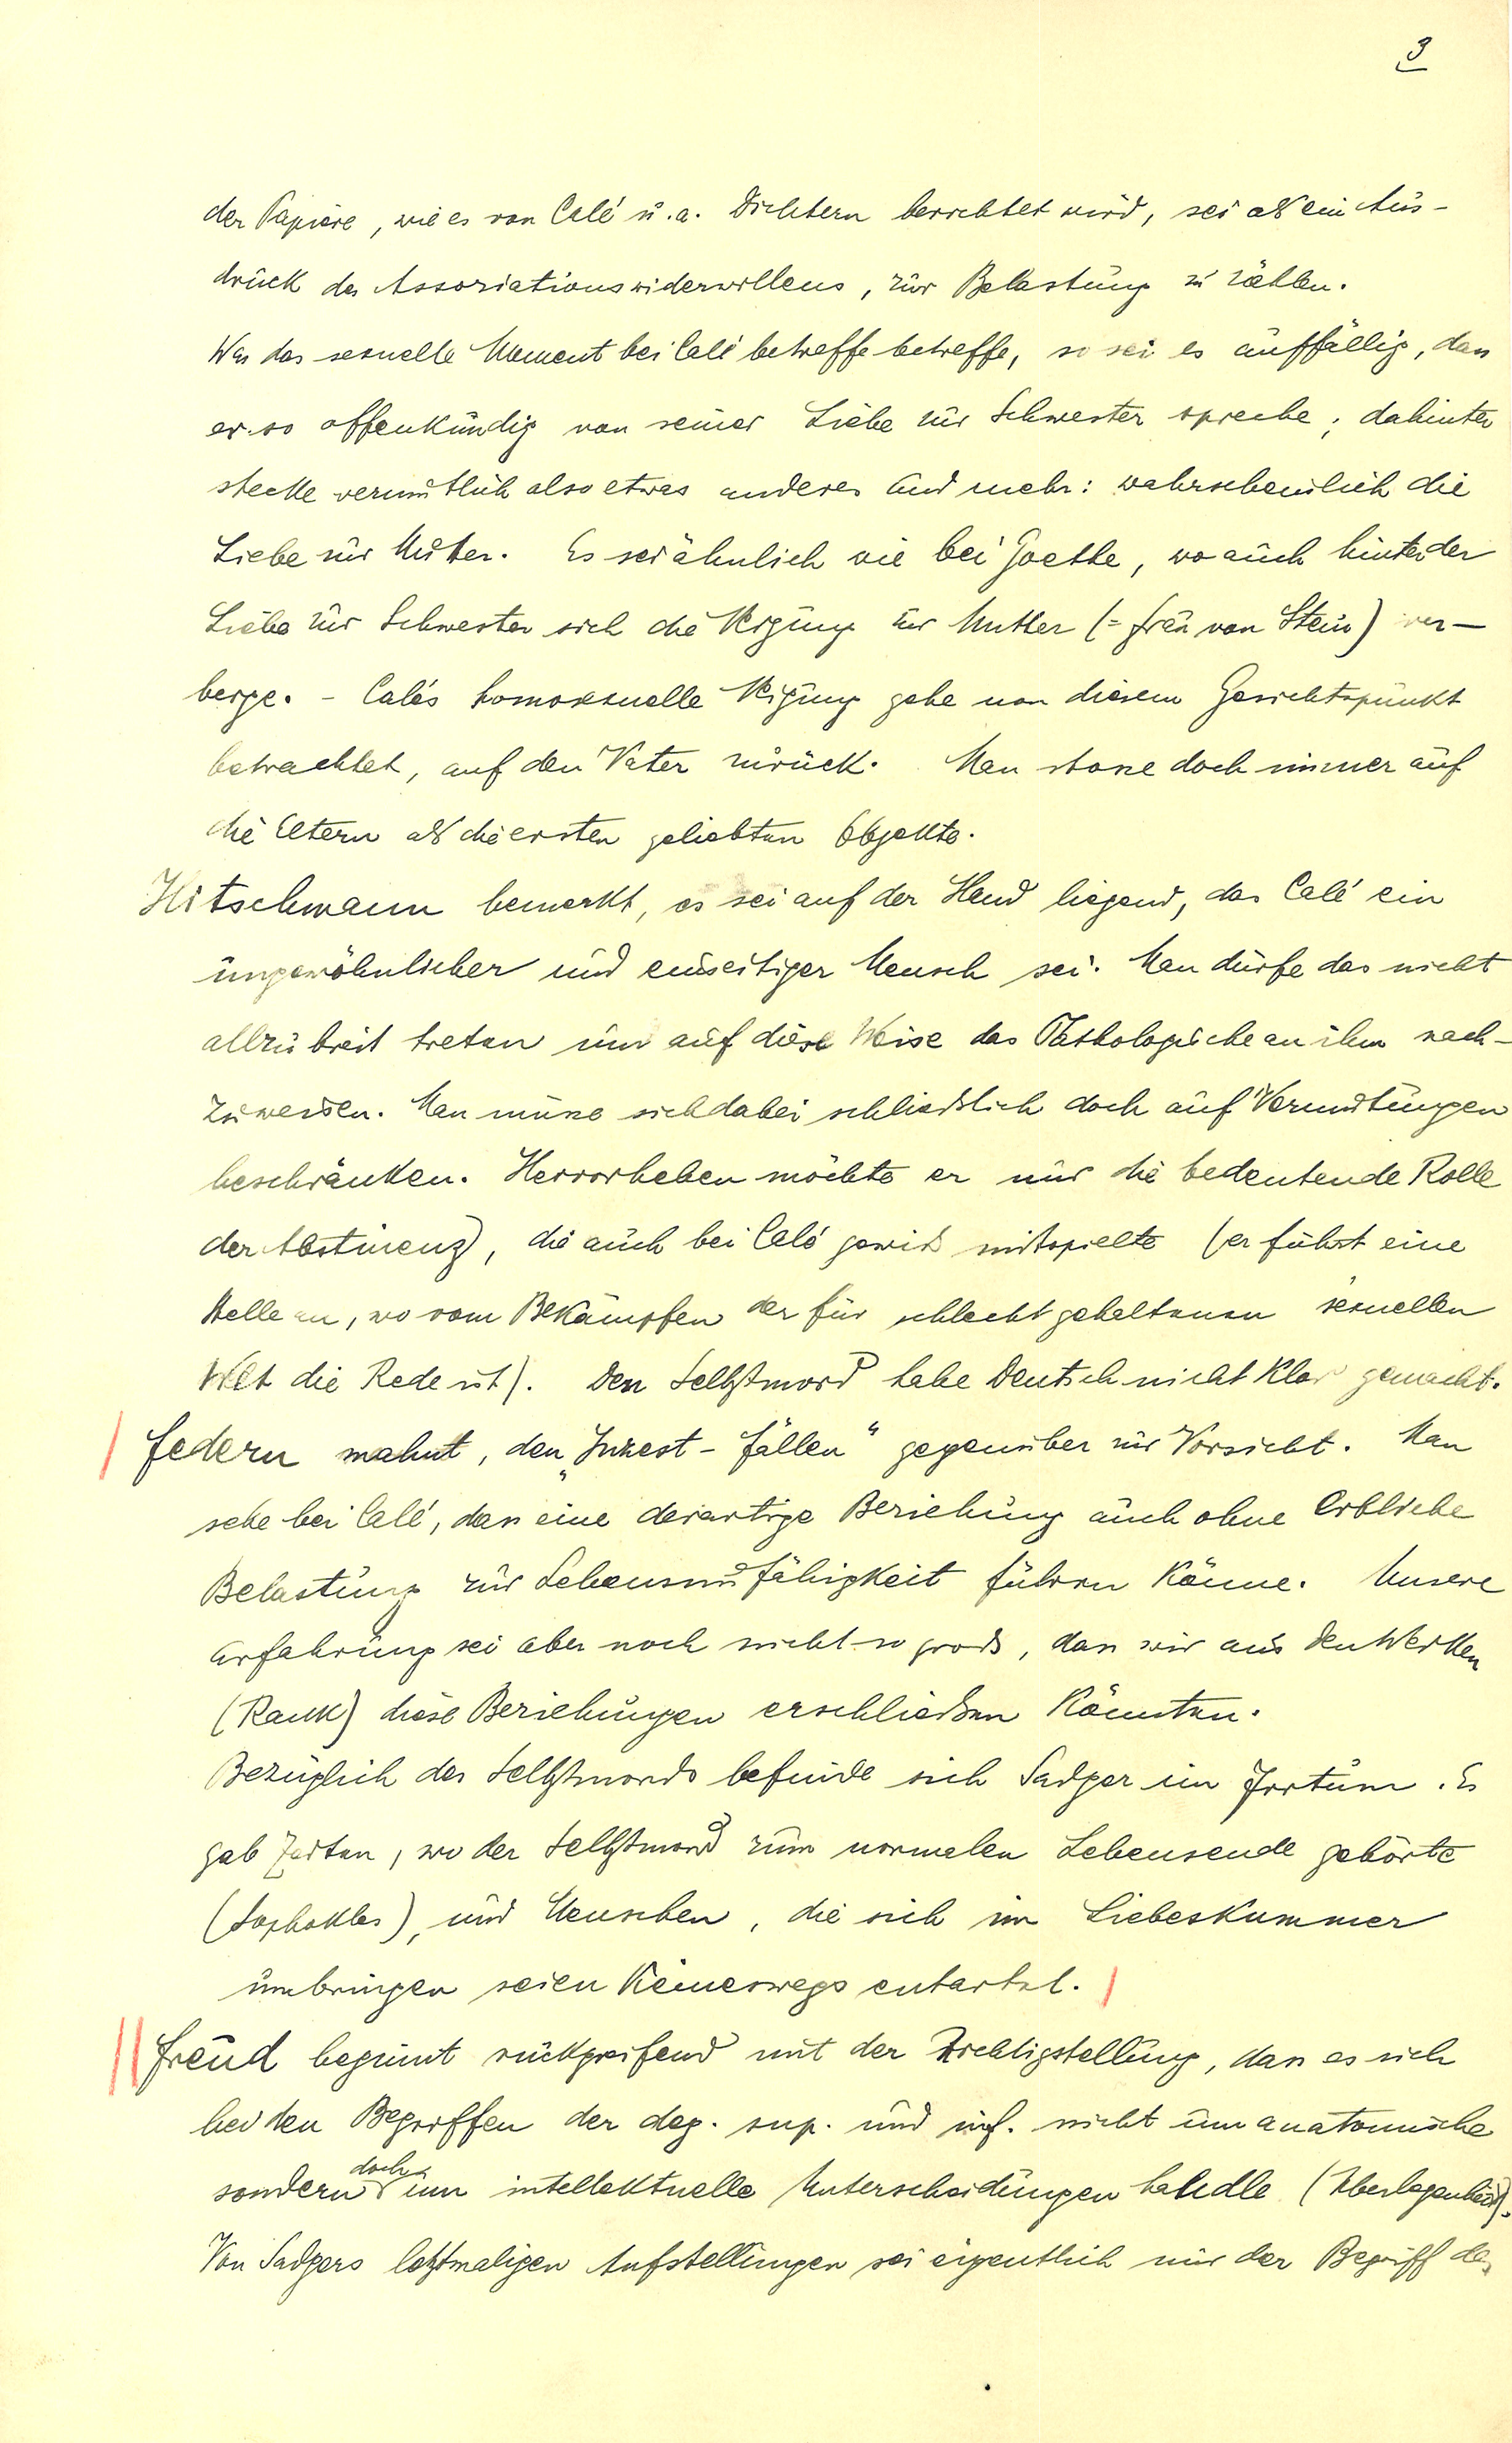 3
der Papiere, wie es von Calé u. a. Dichtern berichtet wird, sei als ein Aus-
druck des Associationswiderwillens, zur Belastung zu zählen.
Was das sexuelle Moment bei Calé betreffe betreffe, so sei es auffällig, dass
er so offenkundig von seiner Liebe zur Schwester spreche; dahinter
stecke vermutlich also etwas anderes und mehr: wahrscheinlich die
Liebe zur Mutter. Es sei ähnlich wie bei Goethe, wo auch hinter der
Liebe zur Schwester sich die Neigung zur Mutter (= Frau von Stein) ver-
berge. - Calés homosexuelle Neigung gehe von diesem Gesichtspunkt
betrachtet, auf den Vater zurück. Man stosse doch immer auf
die Eltern als die ersten geliebten Objekte.
Hitschmann bemerkt, es sei auf der Hand liegend, dass Calé ein
ungewöhnlicher und einseitiger Mensch sei. Man dürfe das nicht
allzu breit treten um auf diese Weise das Pathologische an ihm nach-
zuweisen. Man müsse sich dabei schliesslich doch auf Vermutungen
beschränken. Hervorheben möchte er nur die bedeutende Rolle
der Abstinenz, die auch bei Calé gewiss mitspielte (er führt eine
Stelle an, wo vom Bekämpfen der für schlecht gehaltenen sexuellen
Welt die Rede ist). Den Selbstmord habe Deutsch nicht klar gemacht.
Federn mahnt, den „Inzest-Fällen“ gegenüber zur Vorsicht. Man
sehe bei Calé, dass eine derartige Beziehung auch ohne erbliche
Belastung zur Lebensunfähigkeit führen könne. Unsere
Erfahrung sei aber noch nicht so gross, dass wir aus den Werken
(Rank) diese Beziehungen erschliessen könnten.
Bezüglich des Selbstmords befinde sich Sadger im Irrtum. Es
gab Zeiten, wo der Selbstmord zum normalen Lebensende gehörte
(Sophokles), und Menschen, die sich im Liebeskummer
umbringen seien keineswegs entartet.
Freud beginnt rückgreifend mit der Richtigstellung, dass es sich
bei den Begriffen der deg. sup. und inf. nicht um anatomische
sondern doch um intellektuelle Unterscheidungen handle (Überlegenheit).
Von Sadgers letztmaligen Aufstellungen sei eigentlich nur der Begriff der